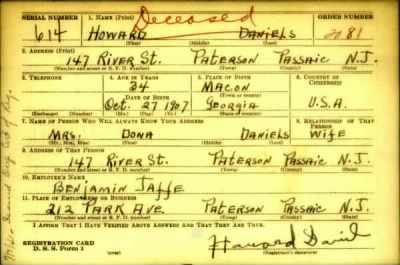 SERIAL NUMBER 1. NAME (Print) Deceased ORDER NUMBER
614 HOWARD DANIELS 2081
(First) (Middle) (Last)
2. ADDRESS (Print)
147 RIVER ST. PATERSON PASSAIC N.J.
(Number and street or R. F. D. number) (Town) (County) (State)
3. TELEPHONE 4. AGE IN YEARS 5. PLACE OF BIRTH 6. COUNTRY OF CITIZENSHIP
34 MACON
(Town)
DATE OF BIRTH
Oct. 27 1907 GEORGIA U.S.A.
(Mo.) (Day) (Yr.) (State or country)
7. NAME OF PERSON WHO WILL ALWAYS KNOW YOUR ADDRESS 8. RELATIONSHIP OF THAT PERSON
MRS. DONA DANIELS WIFE
(Mr., Mrs., Miss) (First) (Middle) (Last)
9. ADDRESS OF THAT PERSON
147 RIVER ST. PATERSON PASSAIC N.J.
(Number and street or R. F. D. number) (Town) (County) (State)
10. EMPLOYER'S NAME
BENJAMIN JAFFE
11. PLACE OF EMPLOYMENT OR BUSINESS
212 PARK AVE. PATERSON PASSAIC N.J.
(Number and street or R. F. D. number) (Town) (County) (State)
I AFFIRM THAT I HAVE VERIFIED ABOVE ANSWERS AND THAT THEY ARE TRUE.
REGISTRATION CARD
D. S. S. Form 1 (over) Howard Daniel
(Registrant's signature)